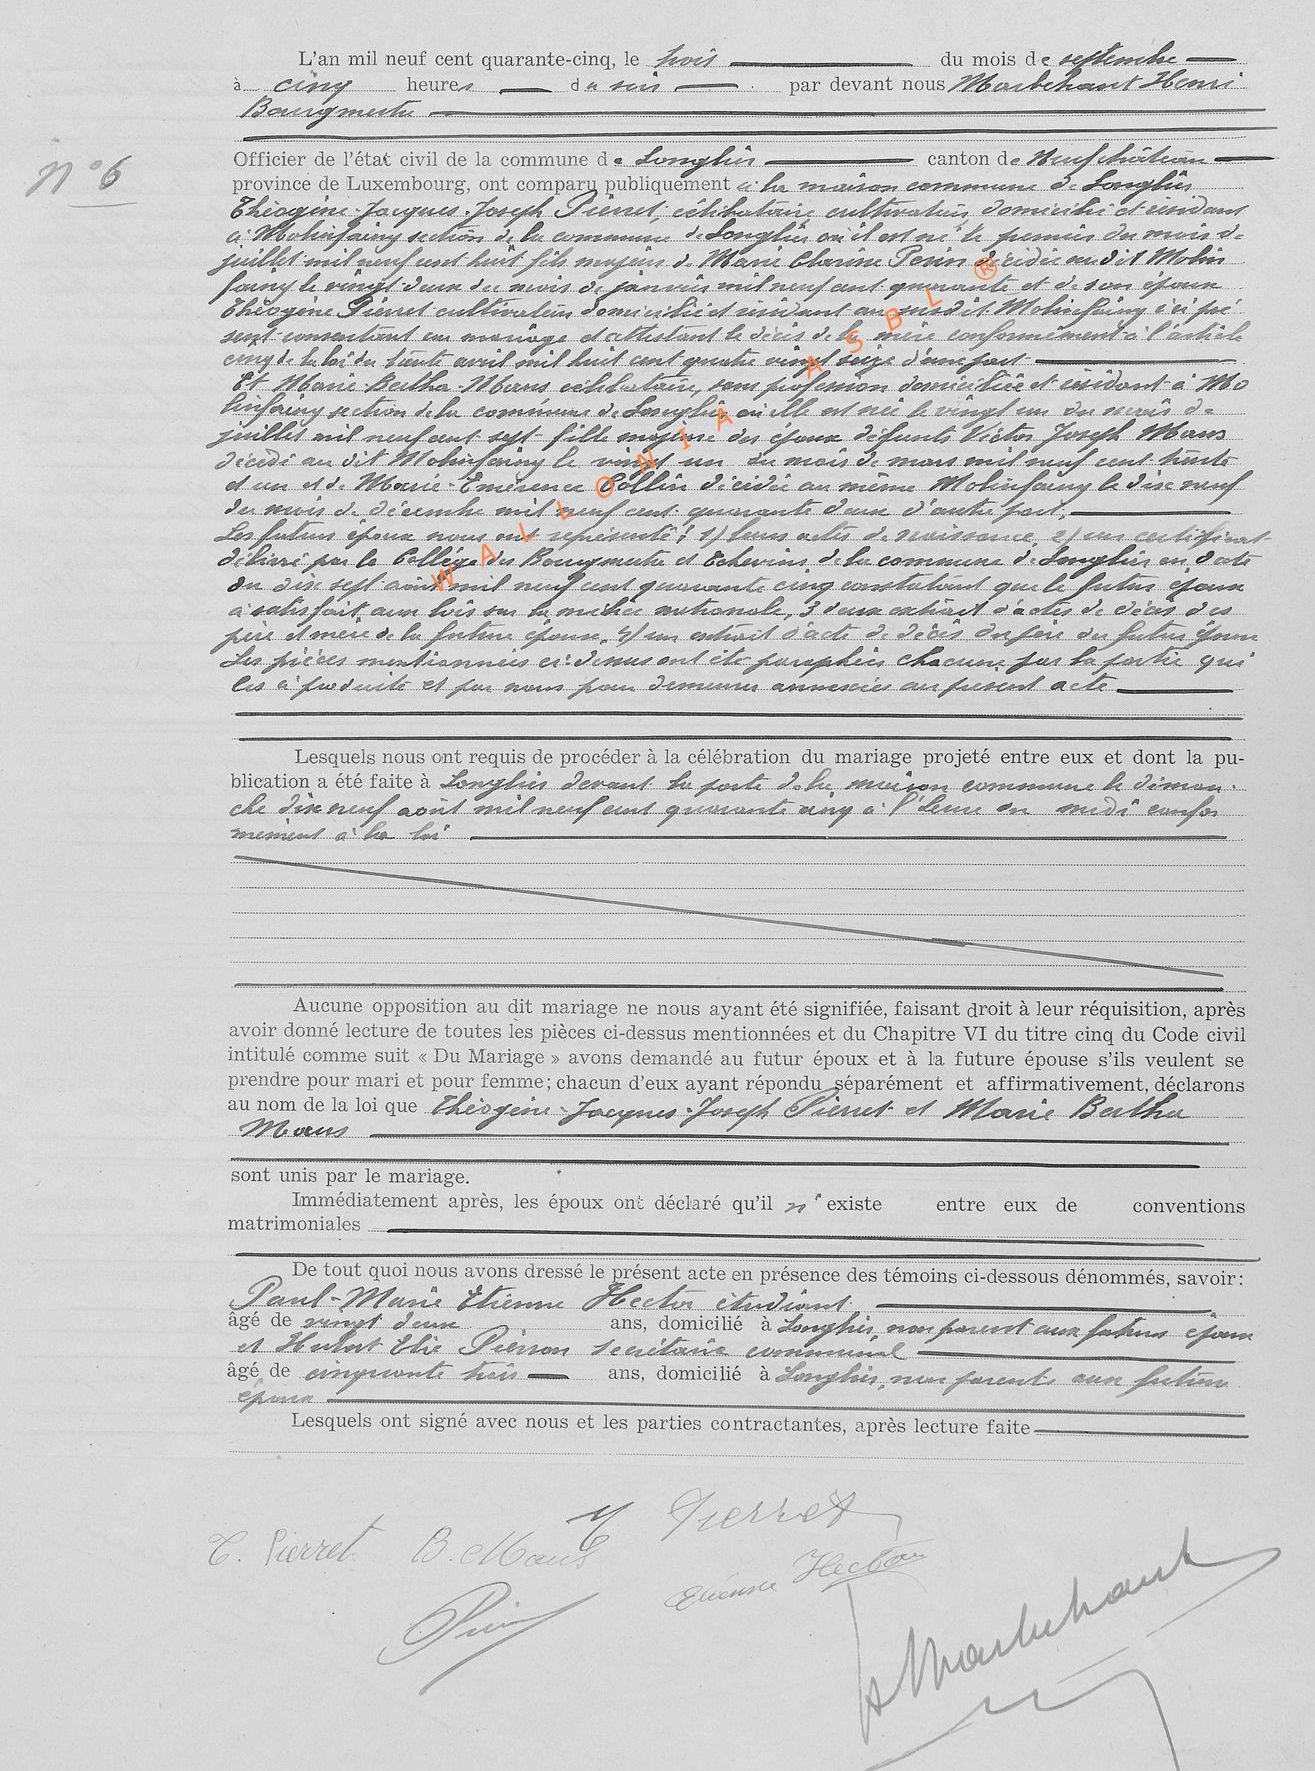 L'an mil neuf cent quarante-cinq, le trois du mois de septembre
à cinq heures du soir par devant nous Marbehant Henri
Bourgmestre
N° 6
Officier de l'état civil de la commune de Longlier canton de Neufchâteau
province de Luxembourg, ont comparu publiquement à la maison commune de Longlier
Théogène-Jacques-Joseph Pierret, célibataire cultivateur, domicilié et résidant
à Molinfaing section de la commune de Longlier où il est né le premier du mois de
juillet mil neuf cent huit fils majeur de Marie Clarine Perin décédée au dit Molin
faing le vingt-deux du mois de janvier mil neuf cent quarante et de son époux
Théogène Pierret cultivateur domicilié et résidant au susdit Molinfaing ici pré
sent consentant au mariage et attestant le décès de la mère conformément à l'article
cinq de la loi du trente avril mil huit cent quatre vingt seize d'une part
Et Marie-Bertha-Maus célibataire, sans profession domiciliée et résidant à Mo
linfaing section de la commune de Longlier où elle est née le vingt un du mois de
juillet mil neuf cent sept fille majeure des époux défunts Victor Joseph Maus
décédé au dit Molinfaing le vingt un du mois de mars mil neuf cent trente
et un et de Marie-Emérence Collin décédée au même Molinfaing le dix neuf
du mois de décembre mil neuf cent quarante deux d'autre part,
Les futurs époux nous ont représenté: 1) leurs actes de naissance, 2) un certificat
délivré par le Collège des Bourgmestre et Echevins de la commune de Longlier en date
du dix sept août mil neuf cent quarante cinq constatant que le futur époux
a satisfait aux lois sur la milice nationale, 3 deux extraits d'actes de décès des
père et mère de la future épouse, 4) un extrait d'acte de décès du père du futur époux
Les pièces mentionnées ci-dessus ont été paraphées chacune par la partie qui
les a produite et par nous pour demeurer annexées au présent acte
WALLONIA ASBL ®
Lesquels nous ont requis de procéder à la célébration du mariage projeté entre eux et dont la pu-
blication a été faite à Longlier devant la porte de la maison commune le diman-
che dix neuf août mil neuf cent quarante cinq à l'heure de midi confor
mément à la loi
Aucune opposition au dit mariage ne nous ayant été signifiée, faisant droit à leur réquisition, après
avoir donné lecture de toutes les pièces ci-dessus mentionnées et du Chapitre VI du titre cinq du Code civil
intitulé comme suit « Du Mariage » avons demandé au futur époux et à la future épouse s'ils veulent se
prendre pour mari et pour femme; chacun d'eux ayant répondu séparément et affirmativement, déclarons
au nom de la loi que Théogène-Jacques-Joseph Pierret et Marie Bertha
Maus
sont unis par le mariage.
Immédiatement après, les époux ont déclaré qu'il n'existe entre eux de conventions
matrimoniales
De tout quoi nous avons dressé le présent acte en présence des témoins ci-dessous dénommés, savoir:
Paul-Marie Etienne Hector étudiant
âgé de vingt deux ans, domicilié à Longlier non parent aux futurs époux
et Hubert Elie Pierson secrétaire communal
âgé de cinquante trois ans, domicilié à Longlier, non parents aux futurs
époux
Lesquels ont signé avec nous et les parties contractantes, après lecture faite
T. Pierret B. Maus T Pierret
Etienne Hector
H Marbehant